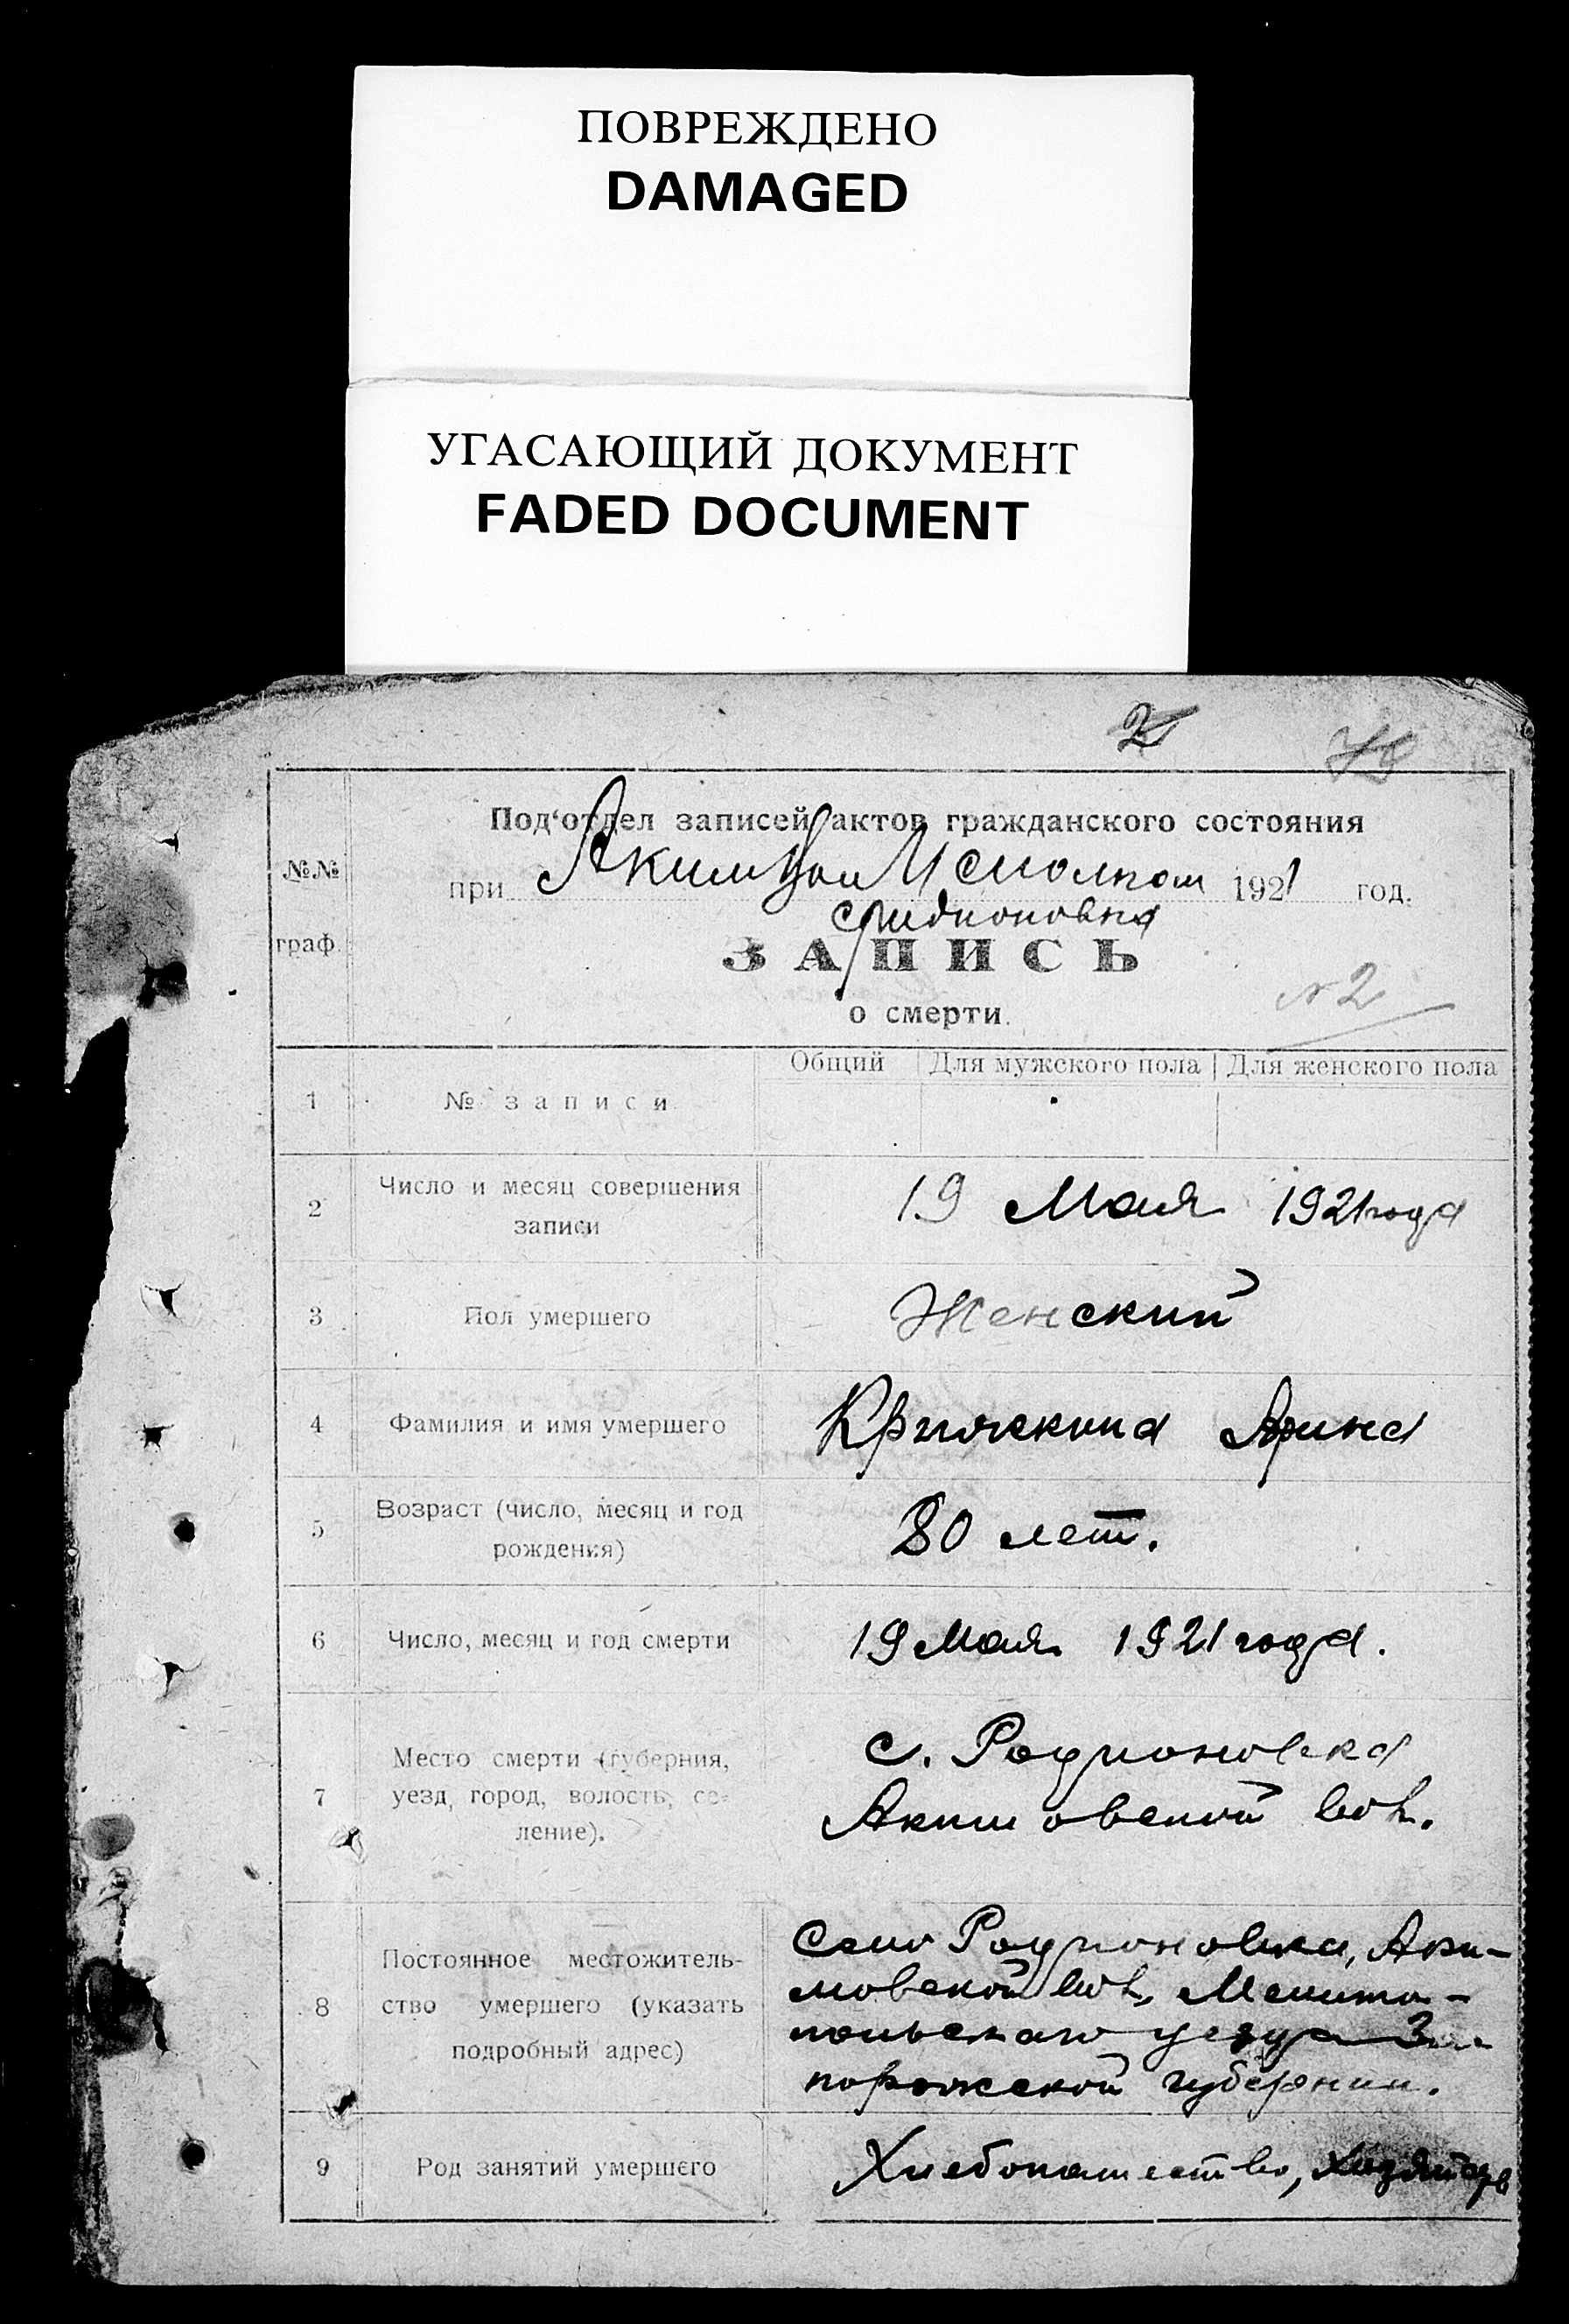 ПОВРЕЖДЕНО
DAMAGED
УГАСАЮЩИЙ ДОКУМЕНТ
FADED DOCUMENT
2
Под'отдел записей актов гражданского состояния
№№ граф.
при 1921 год.
ЗАПИСЬ
о смерти.
№ 2
Общий Для мужского пола Для женского пола
1 № записи
2 Число и месяц совершения
записи
19 Мая 1921 года
3 Пол умершего Женский
4 Фамилия и имя умершего Крыжскина Арина
5 Возраст (число, месяц и год
рождения)
80 лет.
6 Число, месяц и год смерти 19 Мая 1921 года.
7 Место смерти (губерния,
уезд, город, волость, се-
ление).
с. Родионовка
Акимовской вол.
8 Постоянное местожитель-
ство умершего (указать
подробный адрес)
Село Родионовка, Аки-
мовской вол., Мелито-
польскаго уезда За-
порожской губернии.
9 Род занятий умершего Хлебопашество,